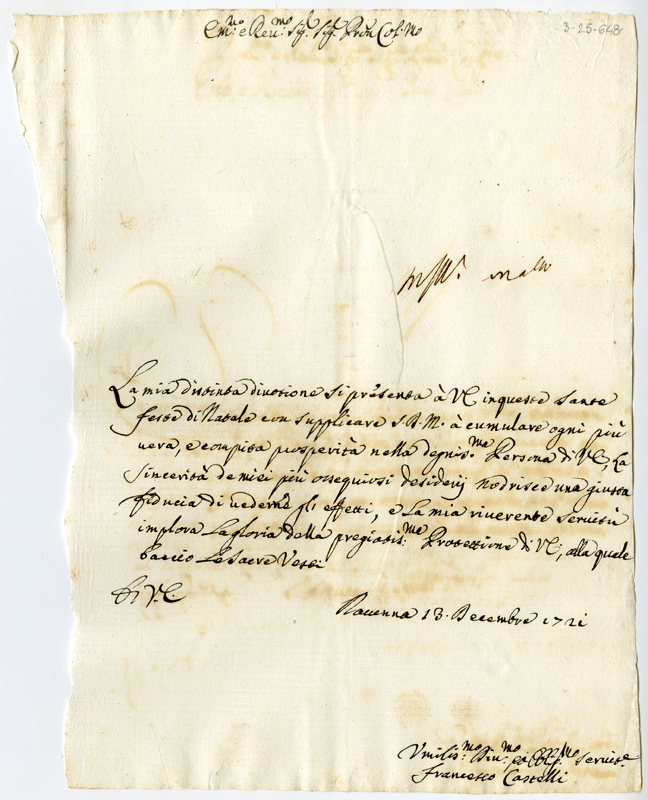 Em:mo e Reu:mo Sig.r Sig.r Pron Col.mo
3-25-648
La mia distinta diuotione si presenta à VE in queste sante
feste di Natale con supplicare S.D.M. à cumulare ogni più
uera, e compita prosperità nella degnis.ma Persona di VE; La
sincerità de miei più ossequiosi desiderij nodrisce una giusta
fiducia di uederne gl'effetti, e la mia riuerente seruitù
implora la gloria della pregiatis:ma Protettione di VE, alla quale
baccio le Sacre Vesti
Di V.E.
Rauenna 13. Decembre 1721
Vmilis:mo Diu:mo ed Obl:mo Seruit.e
Francesco Castelli